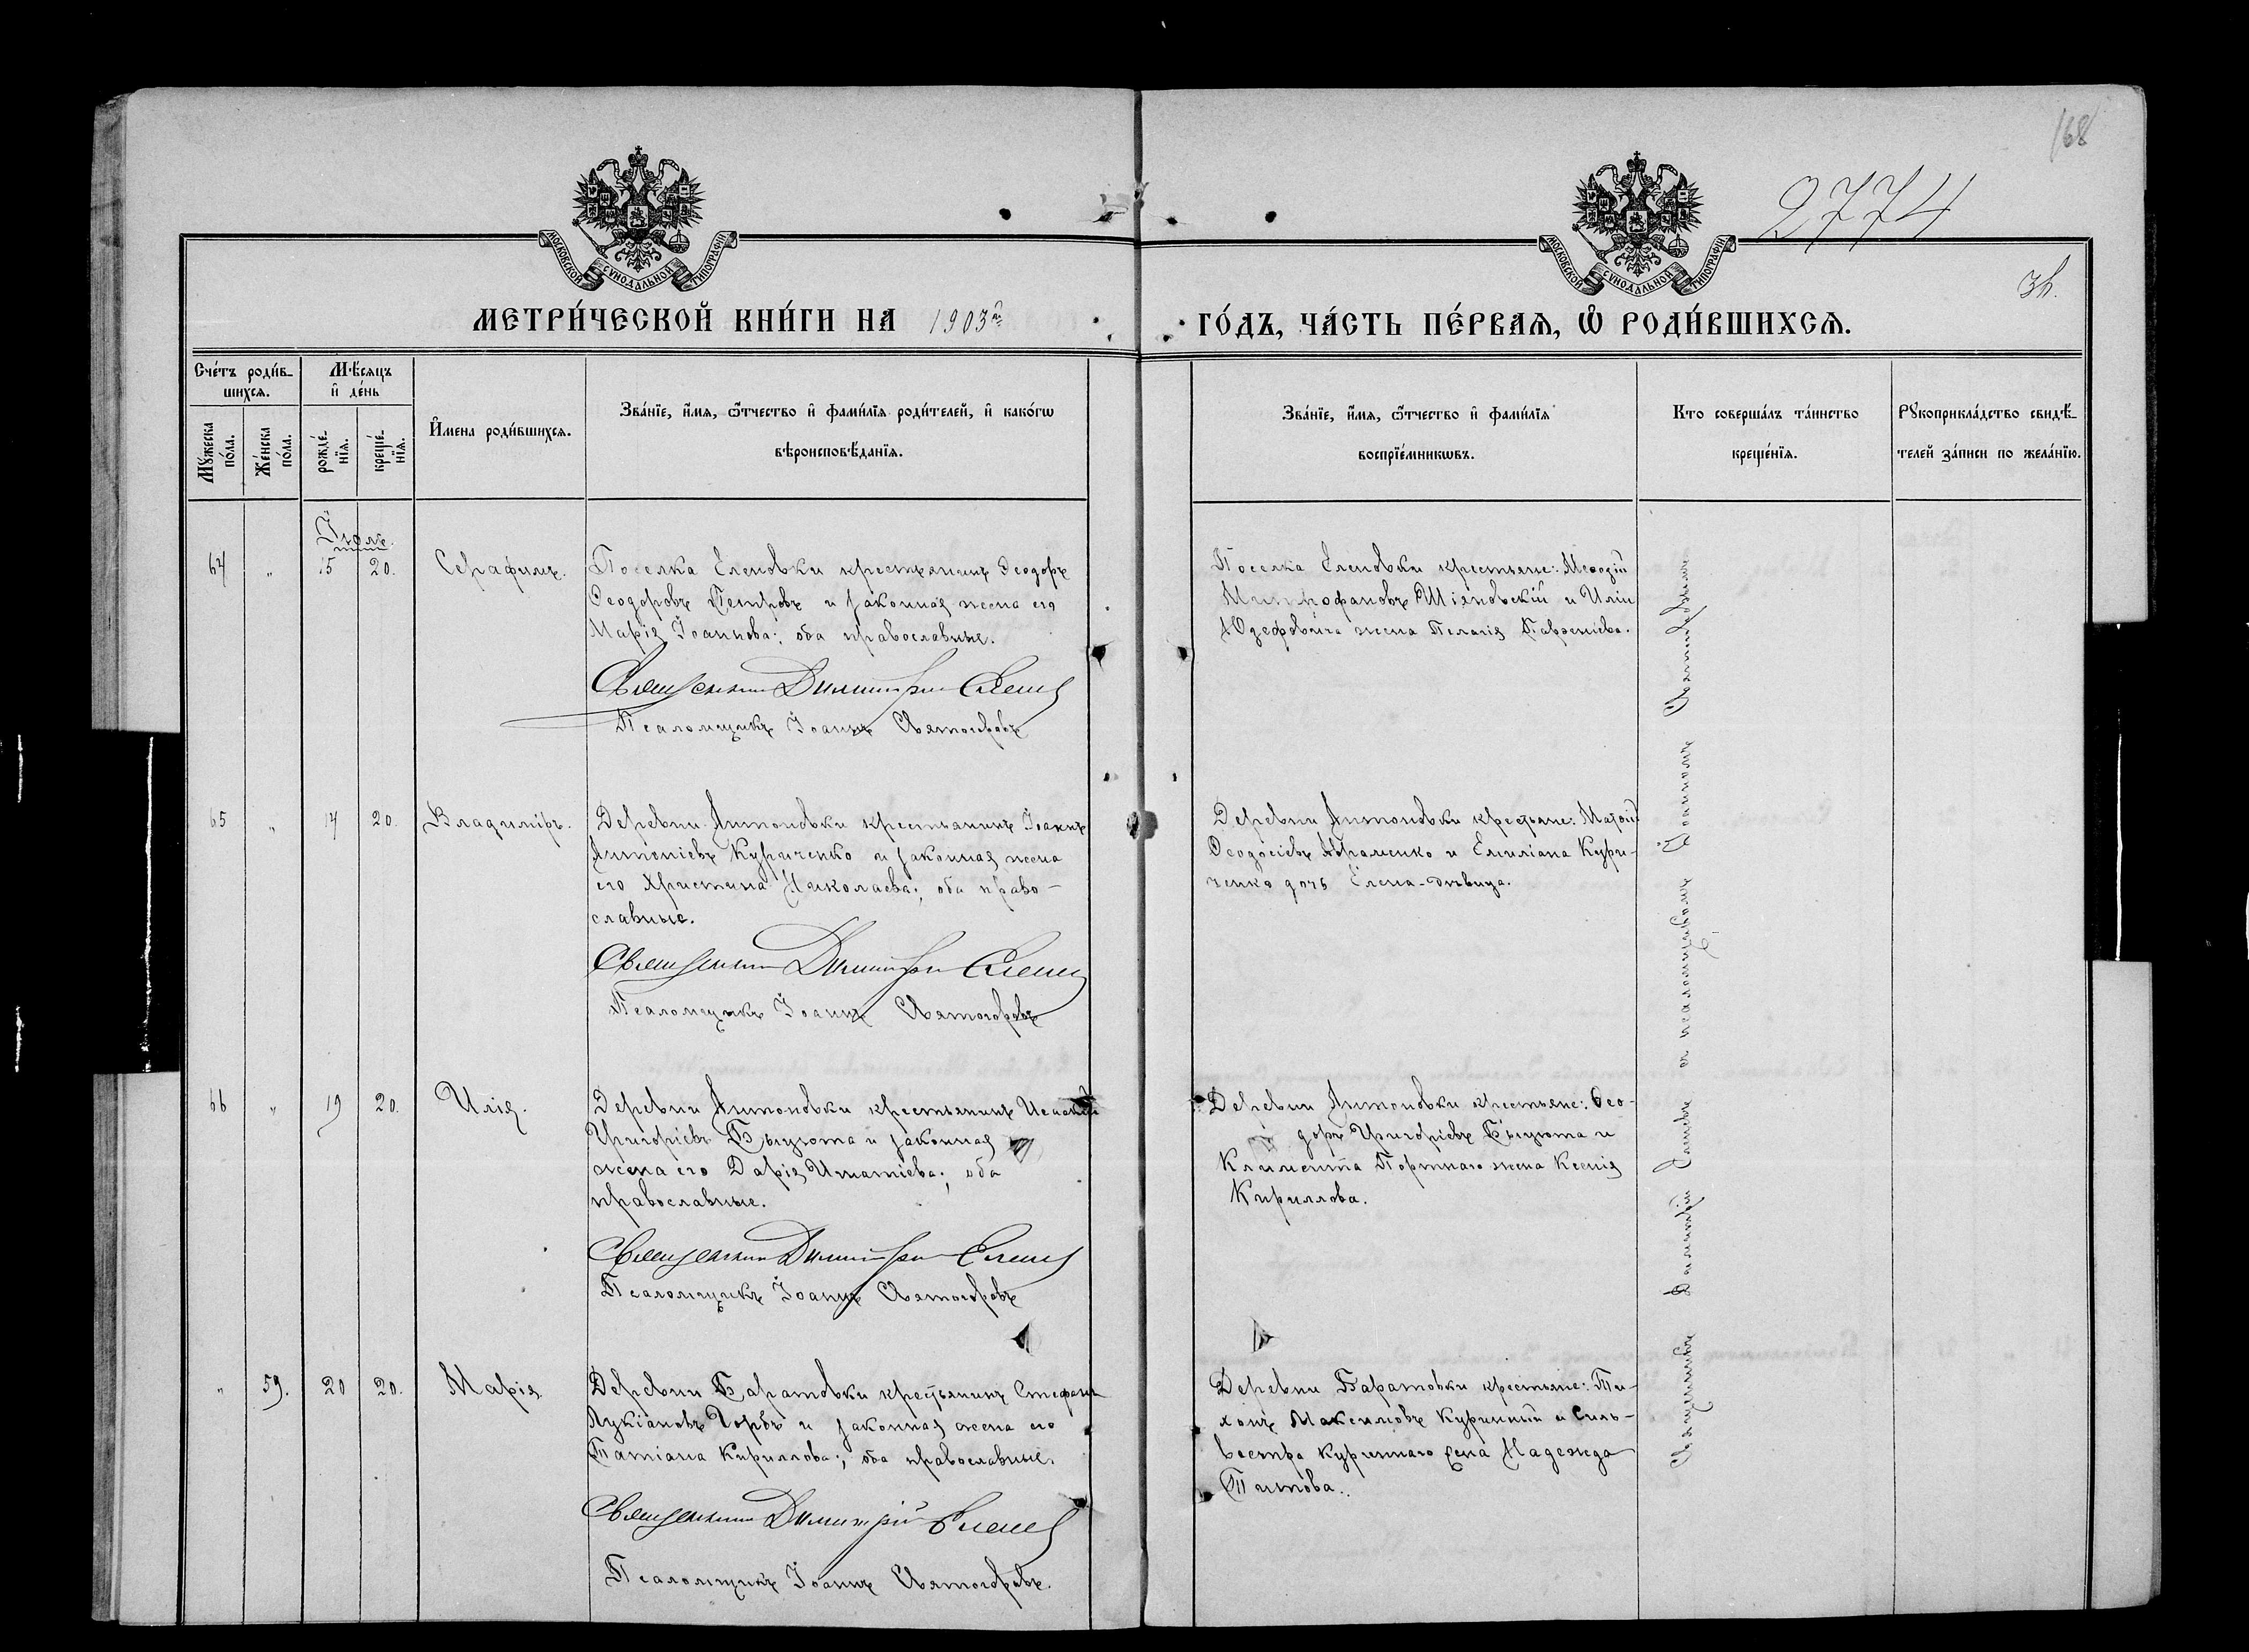 168
2774
МОСКОВСКОЙ СѴНОДАЛЬНОЙ ТИПОГРАФІИ
МОСКОВСКОЙ СѴНОДАЛЬНОЙ ТИПОГРАФІИ
МЕТРИ́ЧЕСКОЙ КНИ́ГИ НА 1903й
ГО́ДЪ, ЧА́СТЬ ПЕ́РВАѦ, Ѽ РОДИ́ВШИХСѦ.
Сче́тъ роди́в-
шихсѧ.
Мꙋ́жеска по́ла.
Же́нска по́ла.
Мѣ́сяцъ
и҆ де́нь
рожде́-
нїѧ.
креще́-
нїѧ.
И҆мена роди́вшихсѧ.
Зва́нїе, и҆́мѧ, ѻ҆́тчество и҆ фами́лїѧ роди́телей, и҆ како́гѡ
вѣроисповѣ́данїѧ.
Зва́нїе, и҆́мѧ, ѻ҆́тчество и҆ фами́лїѧ
воспрїе́мникѡвъ.
Кто соверша́лъ та́инство
креще́нїѧ.
Рꙋкоприкла́дство свидѣ́-
телей за́писи по жела́нїю.
Іюль.
64 „ 15 20. Серафимъ.
Поселка Еленовки крестьянинъ Ѳеодоръ
Ѳеодоровъ Петровъ и законная жена его
Марія Іоаннова; оба православные.
Священникъ Димитрій
Псаломщикъ Іоаннъ Святогоровъ
Поселка Еленовки крестьяне: Меѳодій
Митрофановъ и Иліи
Юзефовича жена Пелагія
65 „ 14 20. Владиміръ.
Деревни Антоновки крестьянинъ Іоаннъ
Антоніевъ Куриченко и законная жена
его Христина Николаева; оба право-
славные.
Священникъ Димитрій
Псаломщикъ Іоаннъ Святогоровъ
Деревни Антоновки крестьяне:
Ѳеодосіевъ Авраменко и Емиліана Кури-
ченко дочь Елена-дѣвица.
66 „ 19 20. Илія.
Деревни Антоновки крестьянинъ
Григоріевъ и законная
жена его Дарія Игнатіева; оба
православные.
Священникъ Димитрій
Псаломщикъ Іоаннъ Святогоровъ
Деревни Антоновки крестьяне: Ѳео-
доръ Григоріевъ и
Климента Портнаго жена Ксенія
Кириллова.
„ 59. 20 20. Марія
Деревни Баратовки крестьянинъ Стефанъ
Лукіановъ Горбъ и законная жена его
Татіана Кириллова; оба православные.
Священникъ Димитрій
Псаломщикъ Іоаннъ Святогоровъ.
Деревни Баратовки крестьяне: Ти-
хонъ Максимовъ Куринный и Силь-
вестра Куриннаго жена Надежда
Титова.
Священникъ Димитрій съ псаломщикомъ Іоанномъ